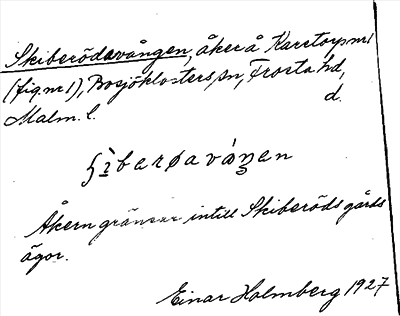 Skiberödavången, åker å Karstorp nr 1
(fig. nr 1), Bosjöklosters sn, Frosta hd,
Malm. l. d.
ʃìbarøavåŋen
Åkern gränsar intill Skiberöds gårds
ägor.
Einar Holmberg 1927